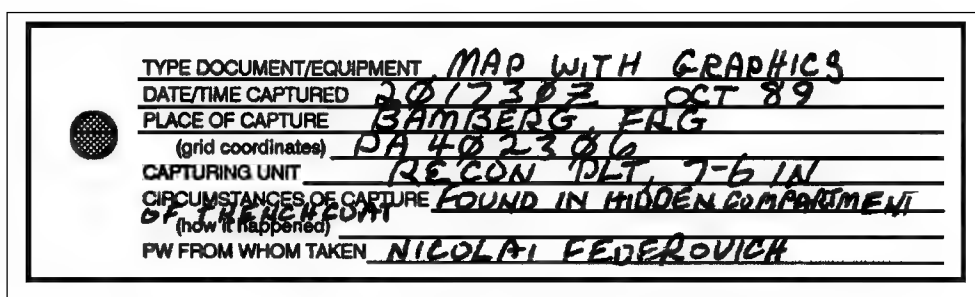 TYPE DOCUMENT/EQUIPMENT MAP WITH GRAPHICS
DATE/TIME CAPTURED 201730Z OCT 89
PLACE OF CAPTURE BAMBERG, FRG
(grid coordinates) PA 402306
CAPTURING UNIT RECON PLT, 7-6 IN
CIRCUMSTANCES OF CAPTURE FOUND IN HIDDEN COMPARTMENT
OF TRENCHCOAT
(how it happened)
PW FROM WHOM TAKEN NICOLAI FEDEROVICH